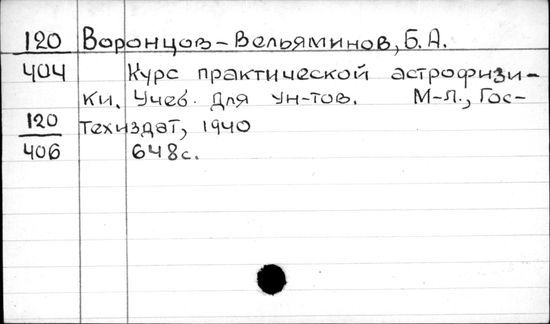 120 Воронцов-Вельяминов, Б.А.
404 Курс практической астрофизи-
ки. Учеб. для ун-тов. М-Л., Гос-
120 техиздат, 1940
406 648с.